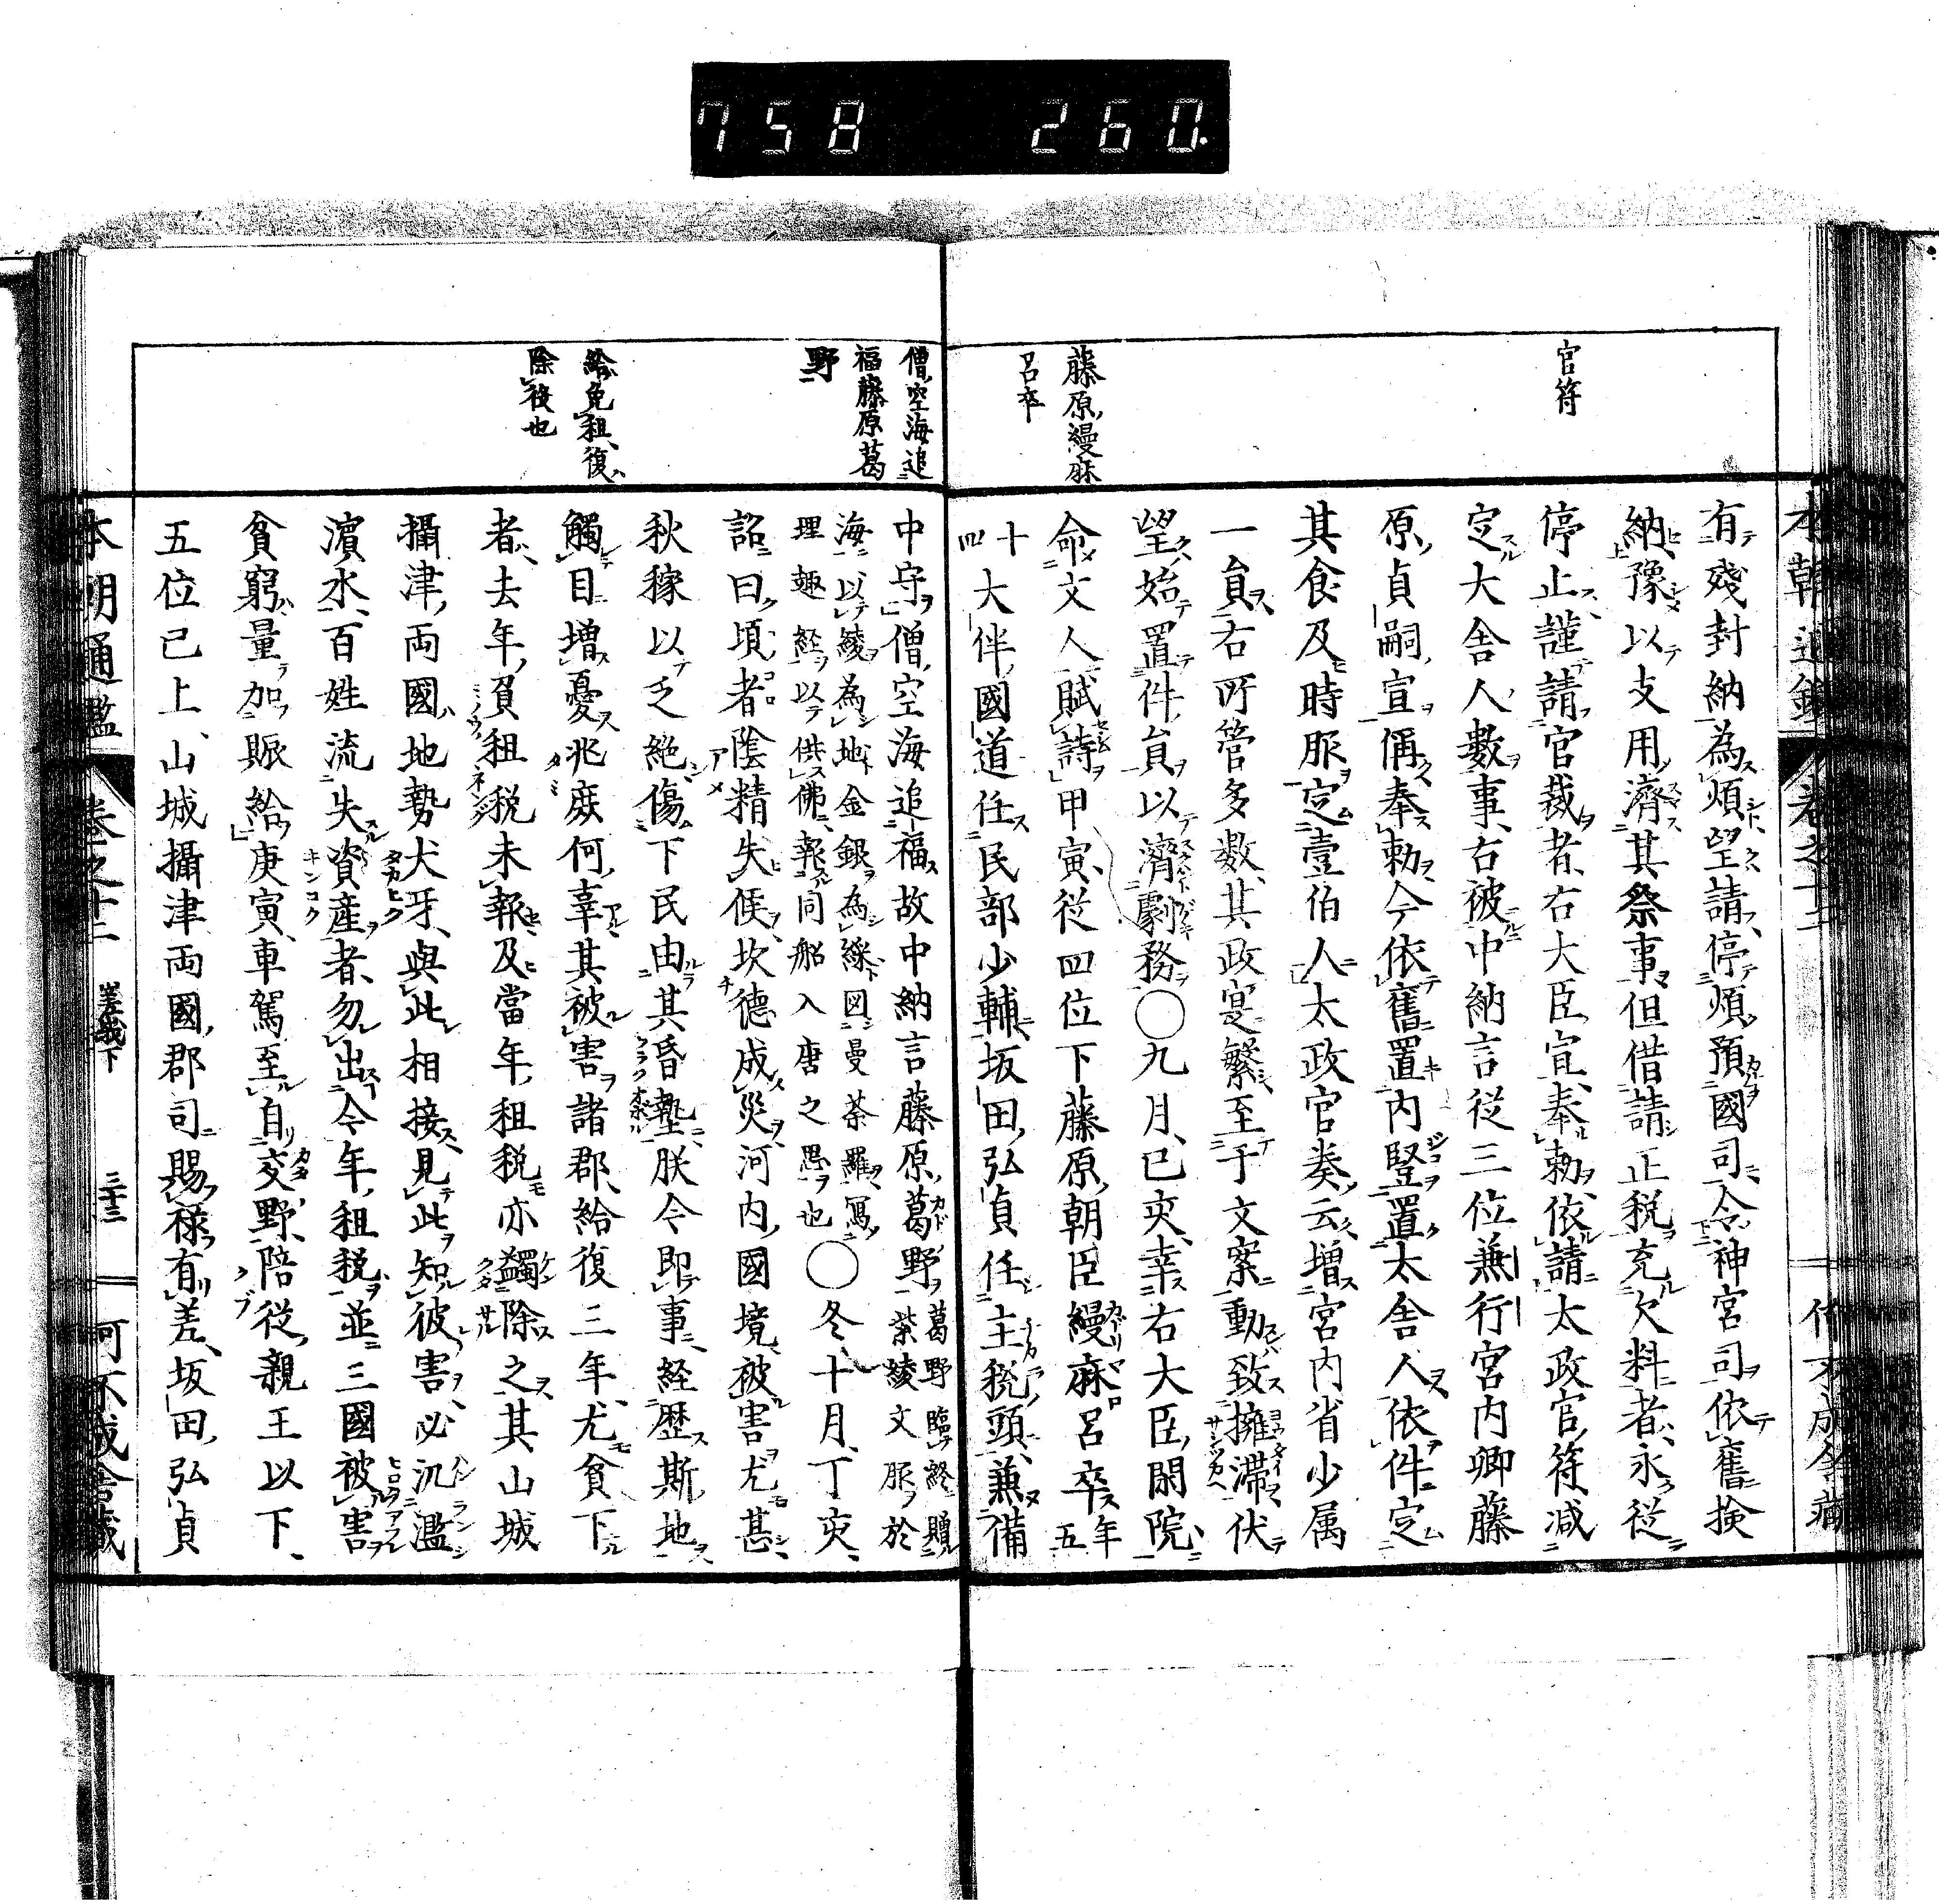 758 260.
官符
藤原縵麻
呂卒
有殘封納為煩望請停煩預國司令神宮司依舊撿
納豫以支用濟其祭事但借請正税充欠料者永從
停止謹請官裁者右大臣宣奉勅依請太政官符减
定大舎人數事右被中納言従三位兼行宮内卿藤
原貞嗣宣偁奉勅今依舊置内竪置太舎人依件定
其食及時服定壹伯人太政官奏云増宮内省少属
一貟右所管多数其政寔繁至于文案動致擁滯伏
望始置件貟以濟劇務〇九月已亥幸右大臣閑院
命文人賦詩甲寅従四位下藤原朝臣縵麻呂卒年五
十四大伴國道任民部少輔坂田弘貞任主税頭兼備
僧空海追
福藤原葛
野
給免租復
除役也
中守僧空海追福故中納言藤原葛野葛野臨終贈紫綾文服於
海以綾為地金銀為綵図曼荼羅寫
理趣経以供佛報同舩入唐之恩也〇冬十月丁亥
詔曰頃者陰精失候坎德成災河内國境被害尤甚
秋稼以乏絶傷下民由其昏墊朕今即事経歴斯地
觸目増憂兆庶何辜其被害諸郡給復三年尤貧下
者去年負租税未報及當年租税亦蠲除之其山城
攝津両國地勢犬牙與此相接見此知彼害必汎濫
濵水百姓流失資産者勿出今年租税並三國被害
貧窮量加賑給庚寅車駕至自交野陪従親王以下
五位已上山城攝津両國郡司賜禄有差坂田弘貞
本朝通鑑 巻之十二 嵯峨下 三十三 可不成舎蔵